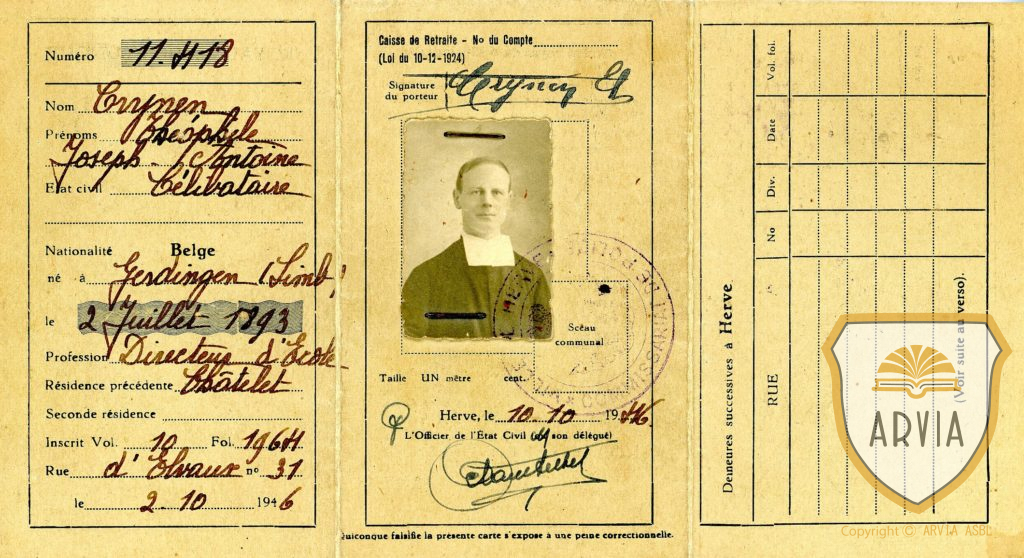 Numéro 11.418
Nom Crynen
Prénoms Théophile
Joseph - Antoine
Etat civil Célibataire
Nationalité Belge
né à Gerdingen (Limb.)
le 2 Juillet 1893
Profession Directeur d'Ecole
Résidence précédente Châtelet
Seconde résidence
Inscrit Vol. 10 Fol. 1964
Rue d'Elvaux n° 31
le 2.10 1946
Caisse de Retraite - No du Compte
(Loi du 10-12-1924)
Signature
du porteur Crynen
Scéau
communal
Taille UN mètre cent.
Herve, le 10.10 1946
L'Officier de l'État Civil (ou son délégué)
quiconque falsifie la présente carte s'expose à une peine correctionnelle.
Demeures successives à Herve
(Voir suite au verso).
RUE
No
Div.
Date
Vol. fol.
ARVIA
Copyright © ARVIA ASBL